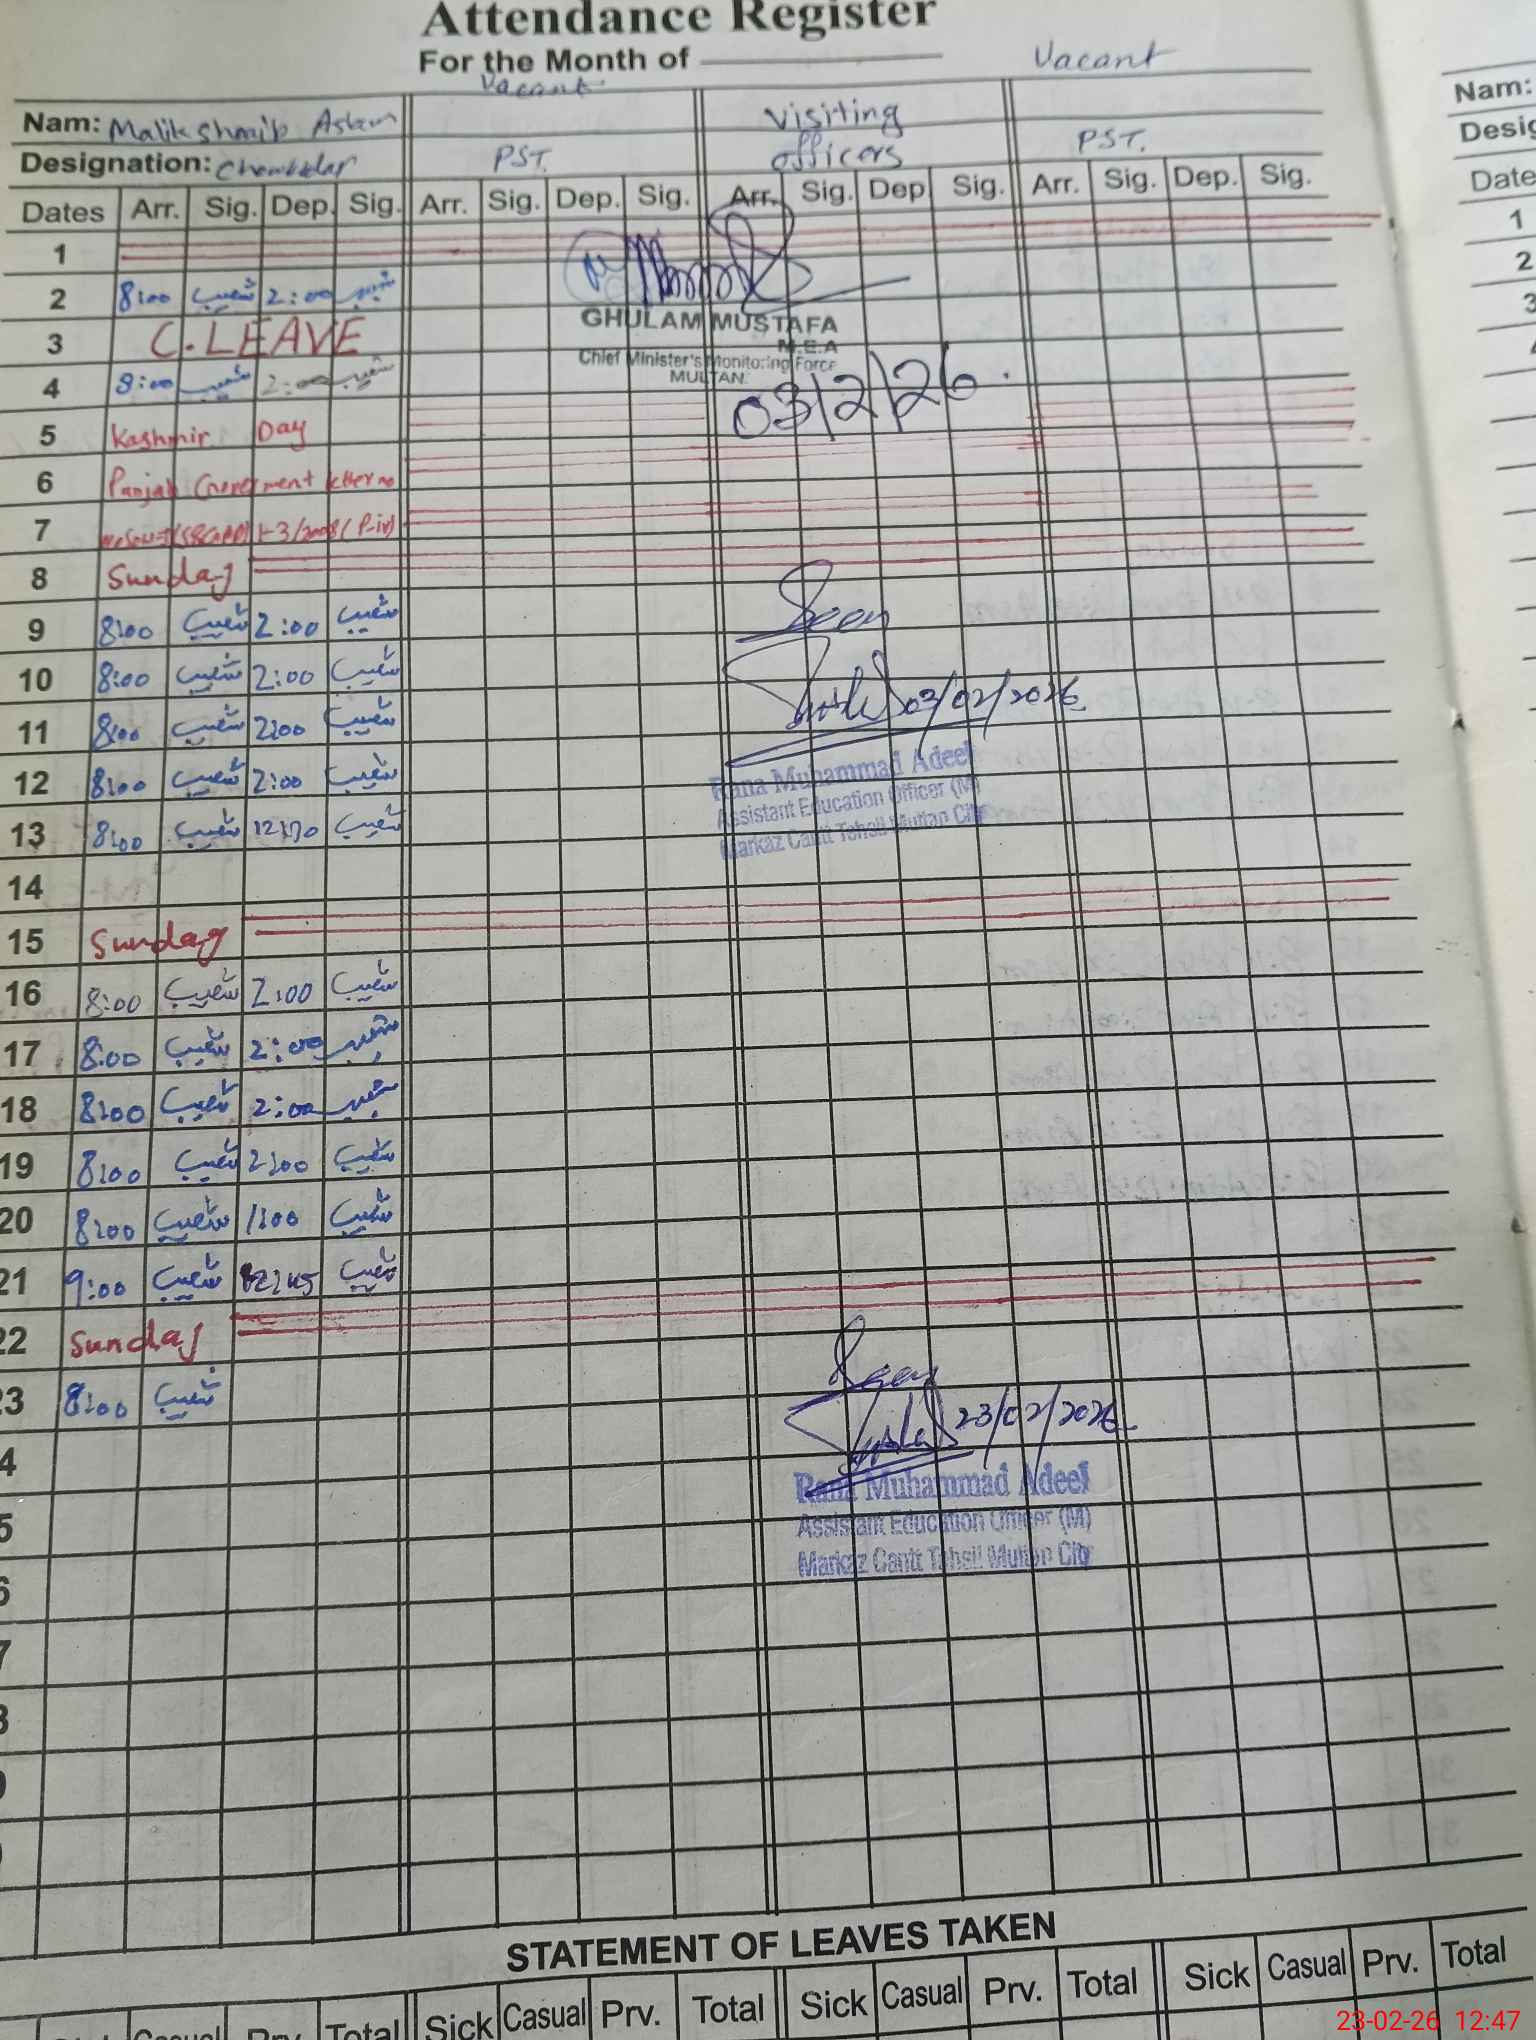 Attendance Register
For the Month of
Vacant Vacant
Nam: Malik Shoaib Aslam Visiting Nam:
Designation: PST. officers PST. Desig
Dates Arr. Sig. Dep. Sig. Arr. Sig. Dep. Sig. Arr. Sig. Dep Sig. Arr. Sig. Dep. Sig. Date
1 1
2 8:00 شعیب 2:00 شعیب 2
GHULAM MUSTAFA
M.E.A
3 C.LEAVE 3
Chief Minister's Monitoring Force
MULTAN.
4 8:00 شعیب 2:00 شعیب
03/2/26.
5 Kashmir Day
6 Panjab Government letter no
7 1-3/2008 (P-iv)
8 Sunday
9 8:00 شعیب 2:00 شعیب
Seen
10 8:00 شعیب 2:00 شعیب
03/02/2026
11 8:00 شعیب 2:00 شعیب
12 8:00 شعیب 2:00 شعیب
Rana Muhammad Adeel
Assistant Education Officer (M)
Markaz Cantt Tehsil Multan City
13 8:00 شعیب 12:30 شعیب
14
15 Sunday
16 8:00 شعیب 2:00 شعیب
17 8:00 شعیب 2:00 شعیب
18 8:00 شعیب 2:00 شعیب
19 8:00 شعیب 2:00 شعیب
20 8:00 شعیب 1:00 شعیب
21 9:00 شعیب 12:45 شعیب
22 Sunday
Seen
23 8:00 شعیب
23/02/2026
4
Rana Muhammad Adeel
Assistant Education Officer (M)
Markaz Cantt Tehsil Multan City
5
6
7
8
9
STATEMENT OF LEAVES TAKEN
Casual Prv. Total Sick Casual Prv. Total Sick Casual Prv. Total Sick Casual Prv. Total
23-02-26 12:47